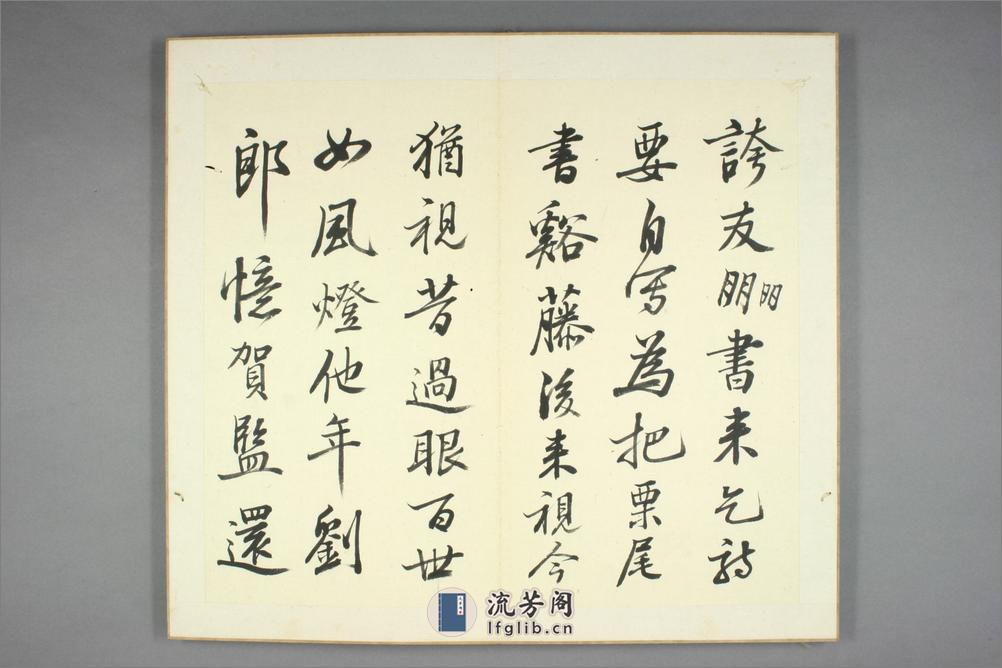 誇友朋朋書来乞詩
要自写為把栗尾
書谿藤後来視今
猶視昔過眼百世
如風燈他年劉
郎憶賀監還
流芳阁
lfglib.cn